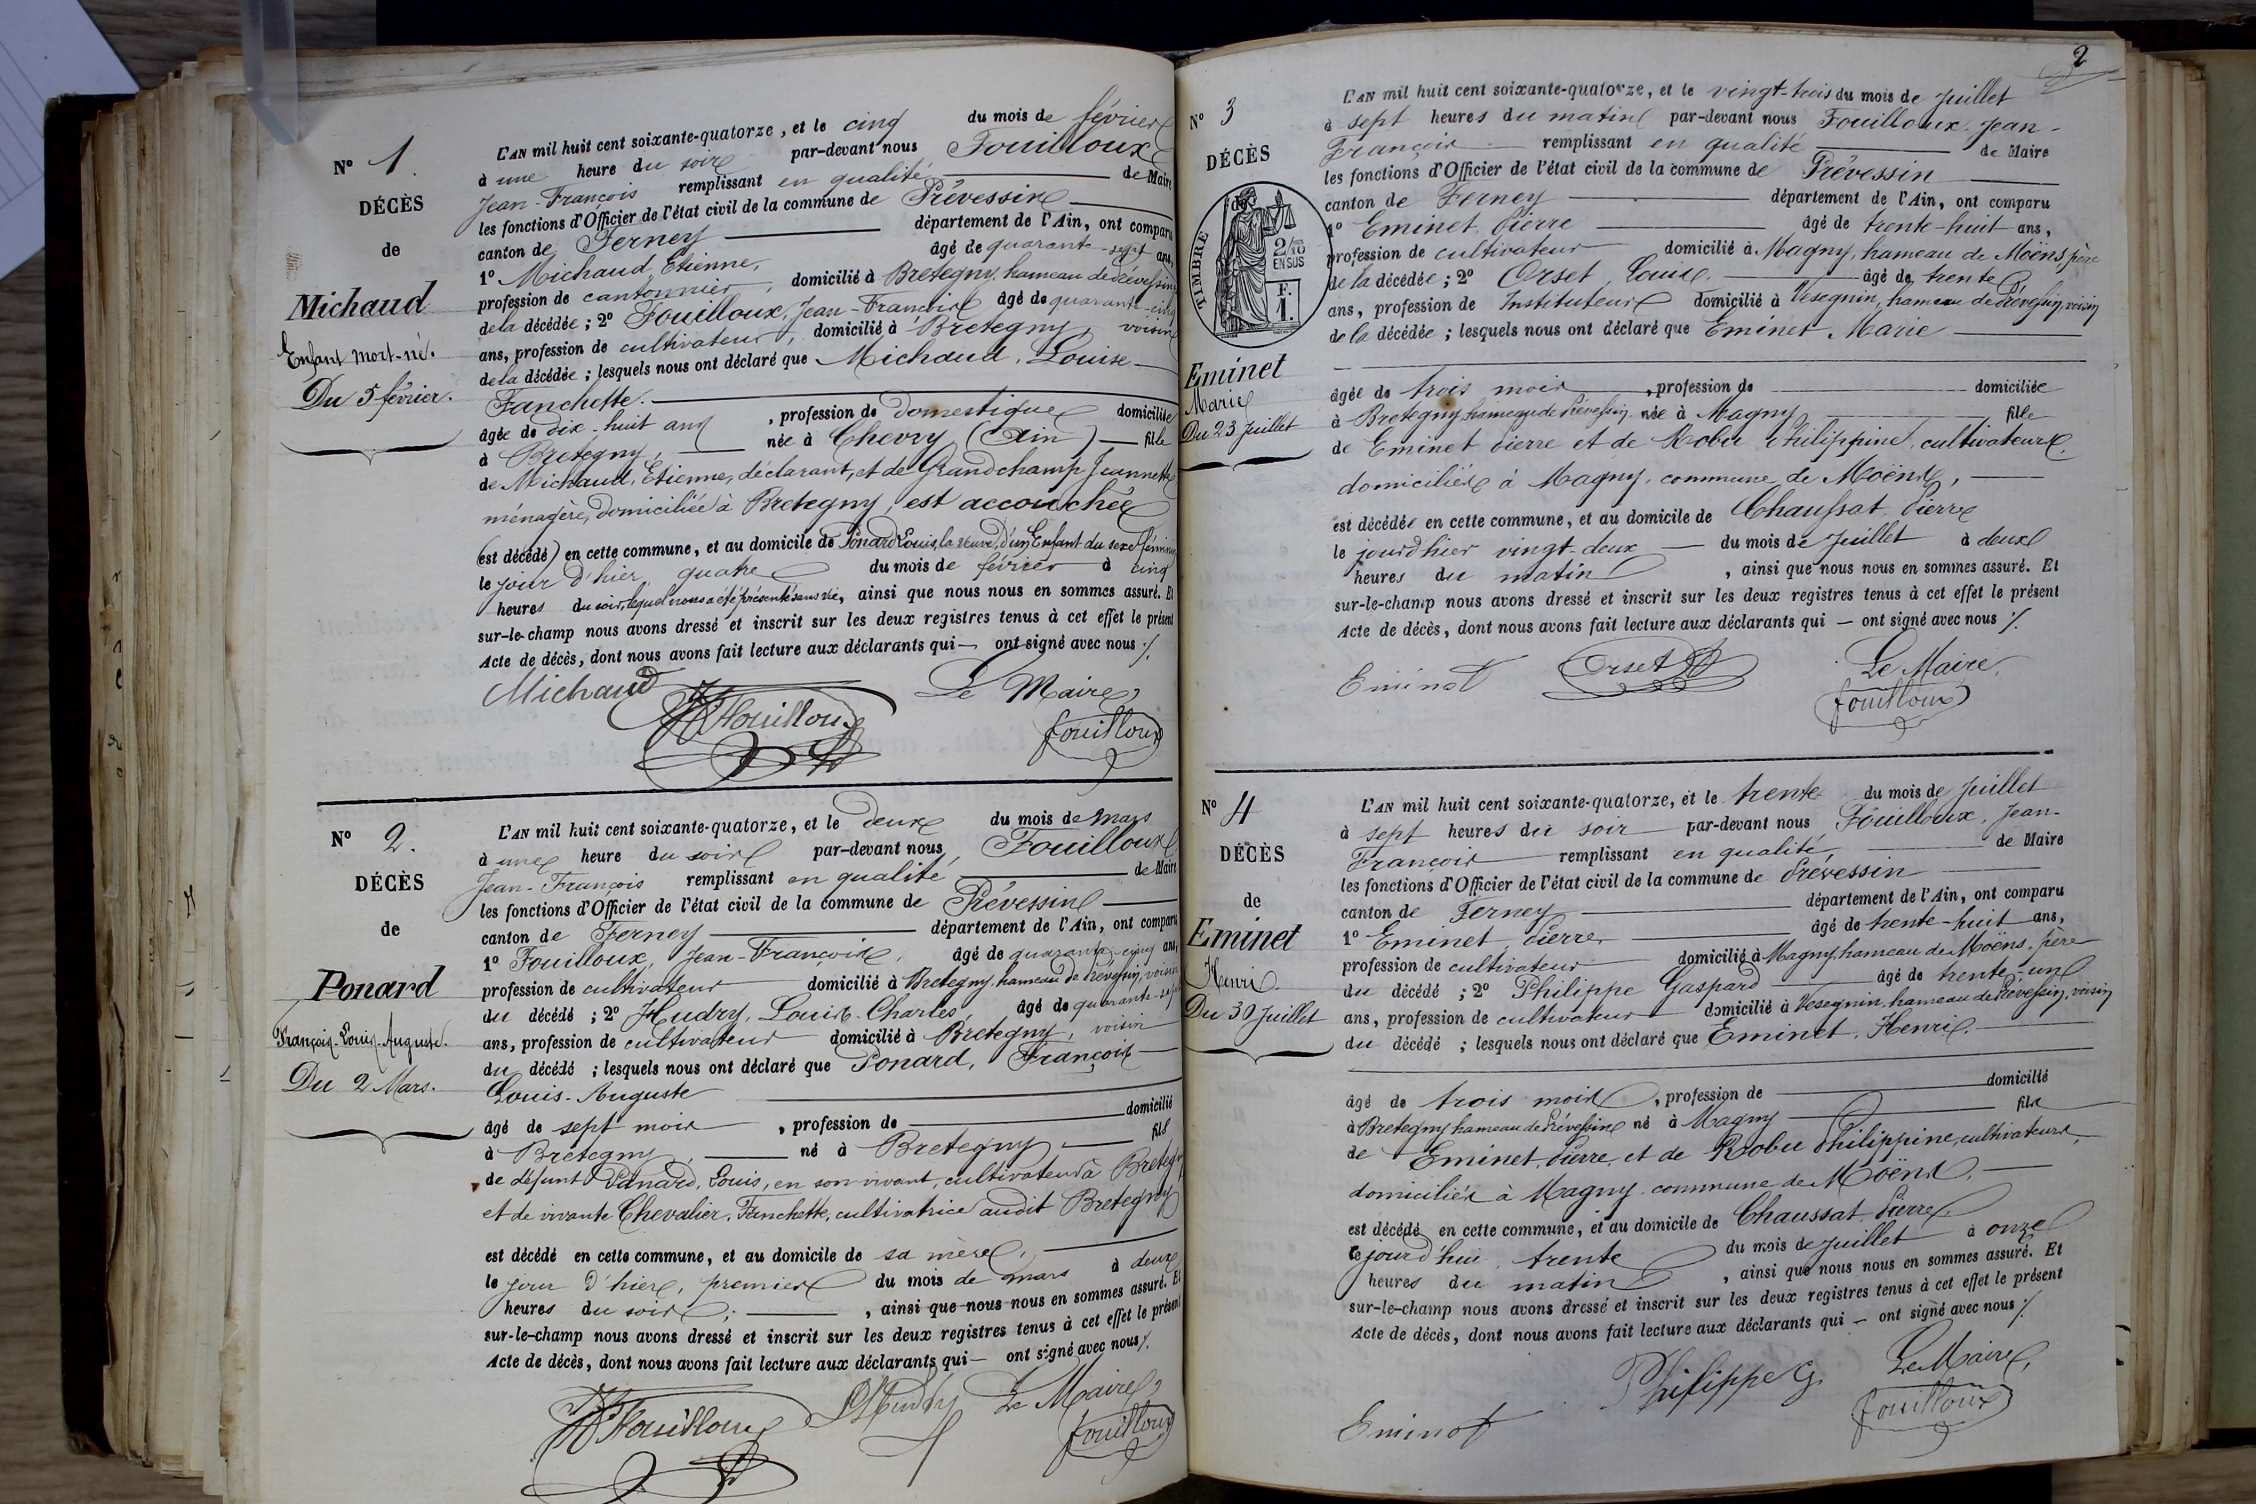 N° 1.
DÉCÈS
de
Michaud
Enfant mort-né.
Du 5 février.
L'AN mil huit cent soixante-quatorze, et le cinq du mois de février
à une heure du soir par-devant nous Fouilloux
Jean-François remplissant en qualité de Maire
les fonctions d'Officier de l'état civil de la commune de Prévessin
canton de Ferney département de l'Ain, ont comparu
1° Michaud, Etienne, âgé de quarante-sept ans,
profession de cantonnier, domicilié à Bretegny, hameau de Prévessin
de la décédée; 2° Fouilloux, Jean-François âgé de quarante-cinq
ans, profession de cultivateur, domicilié à Bretegny, voisin
de la décédée; lesquels nous ont déclaré que Michaud, Louise
Fanchette.
âgée de dix-huit ans, profession de domestique domiciliée
à Bretegny, née à Chevry (Ain) fille
de Michaud, Etienne, déclarant, et de Grandchamp Jeannette
ménagère, domiciliée à Bretegny, est accouchée
(est décédé) en cette commune, et au domicile de Ponard Louis, la veuve, d'un Enfant du sexe féminin
le jour d'hier, quatre du mois de février à cinq
heures du soir, lequel nous a été présenté sans vie, ainsi que nous nous en sommes assuré. Et
sur-le-champ nous avons dressé et inscrit sur les deux registres tenus à cet effet le présent
Acte de décès, dont nous avons fait lecture aux déclarants qui — ont signé avec nous ./.
Michaud Fouilloux Le Maire,
fouilloux
N° 2.
DÉCÈS
de
Ponard
François-Louis-Auguste.
Du 2 Mars.
L'AN mil huit cent soixante-quatorze, et le deux du mois de mars
à une heure du soir par-devant nous Fouilloux
Jean-François remplissant en qualité de Maire
les fonctions d'Officier de l'état civil de la commune de Prévessin
canton de Ferney département de l'Ain, ont comparu
1° Fouilloux, Jean-François, âgé de quarante-cinq ans,
profession de cultivateur domicilié à Bretegny, hameau de Prévessin, voisin
du décédé; 2° Hudry, Louis-Charles, âgé de quarante-sept
ans, profession de cultivateur domicilié à Bretegny, voisin
du décédé; lesquels nous ont déclaré que Ponard, François
Louis-Auguste
âgé de sept mois, profession de domicilié
à Bretegny, né à Bretegny, fils
de défunt Ponard, Louis, en son vivant, cultivateur à Bretegny
et de vivante Chevalier, Fanchette, cultivatrice audit Bretegny
est décédé en cette commune, et au domicile de sa mère,
le jour d'hier, premier du mois de mars à deux
heures du soir; , ainsi que nous nous en sommes assuré. Et
sur-le-champ nous avons dressé et inscrit sur les deux registres tenus à cet effet le présent
Acte de décès, dont nous avons fait lecture aux déclarants qui — ont signé avec nous ./.
Fouilloux Hudry Le Maire,
fouilloux
2
N° 3
DÉCÈS
de
TIMBRE
2/10 EN SUS
F. 1.
Eminet
Marie
Du 23 Juillet
L'AN mil huit cent soixante-quatorze, et le vingt-trois du mois de Juillet
à sept heures du matin par-devant nous Fouilloux, Jean-
François remplissant en qualité de Maire
les fonctions d'Officier de l'état civil de la commune de Prévessin
canton de Ferney département de l'Ain, ont comparu
1° Eminet, Pierre âgé de trente-huit ans,
profession de cultivateur domicilié à Magny, hameau de Moëns père
de la décédée; 2° Orset, Louis, âgé de trente
ans, profession de Instituteur domicilié à Vesegnin, hameau de Prévessin, voisin
de la décédée; lesquels nous ont déclaré que Eminet, Marie
âgée de trois mois, profession de domiciliée
à Bretegny, hameau de Prévessin née à Magny fille
de Eminet Pierre et de Robu Philippine, cultivateurs,
domiciliés à Magny, commune de Moëns,
est décédée en cette commune, et au domicile de Chaussat, Pierre
le jourd'hier vingt-deux du mois de Juillet à deux
heures du matin, ainsi que nous nous en sommes assuré. Et
sur-le-champ nous avons dressé et inscrit sur les deux registres tenus à cet effet le présent
Acte de décès, dont nous avons fait lecture aux déclarants qui — ont signé avec nous ./.
Eminet Orset Le Maire,
fouilloux
N° 4
DÉCÈS
de
Eminet
Henri.
Du 30 Juillet
L'AN mil huit cent soixante-quatorze, et le trente du mois de Juillet
à sept heures du soir par-devant nous Fouilloux, Jean-
François remplissant en qualité, de Maire
les fonctions d'Officier de l'état civil de la commune de Prévessin
canton de Ferney département de l'Ain, ont comparu
1° Eminet, Pierre, âgé de trente-huit ans,
profession de cultivateur domicilié à Magny, hameau de Moëns, père
du décédé; 2° Philippe Gaspard âgé de trente-un
ans, profession de cultivateur domicilié à Vesegnin, hameau de Prévessin, voisin
du décédé; lesquels nous ont déclaré que Eminet, Henri.
âgé de trois mois, profession de domicilié
à Bretegny hameau de Prévessin né à Magny fils
de Eminet, Pierre, et de Robu Philippine, cultivateurs,
domiciliés à Magny commune de Moëns,
est décédé en cette commune, et au domicile de Chaussat, Pierre
cejourd'hui, trente du mois de Juillet à onze
heures du matin, ainsi que nous nous en sommes assuré. Et
sur-le-champ nous avons dressé et inscrit sur les deux registres tenus à cet effet le présent
Acte de décès, dont nous avons fait lecture aux déclarants qui — ont signé avec nous ./.
Eminet Philippe G. Le Maire,
fouilloux